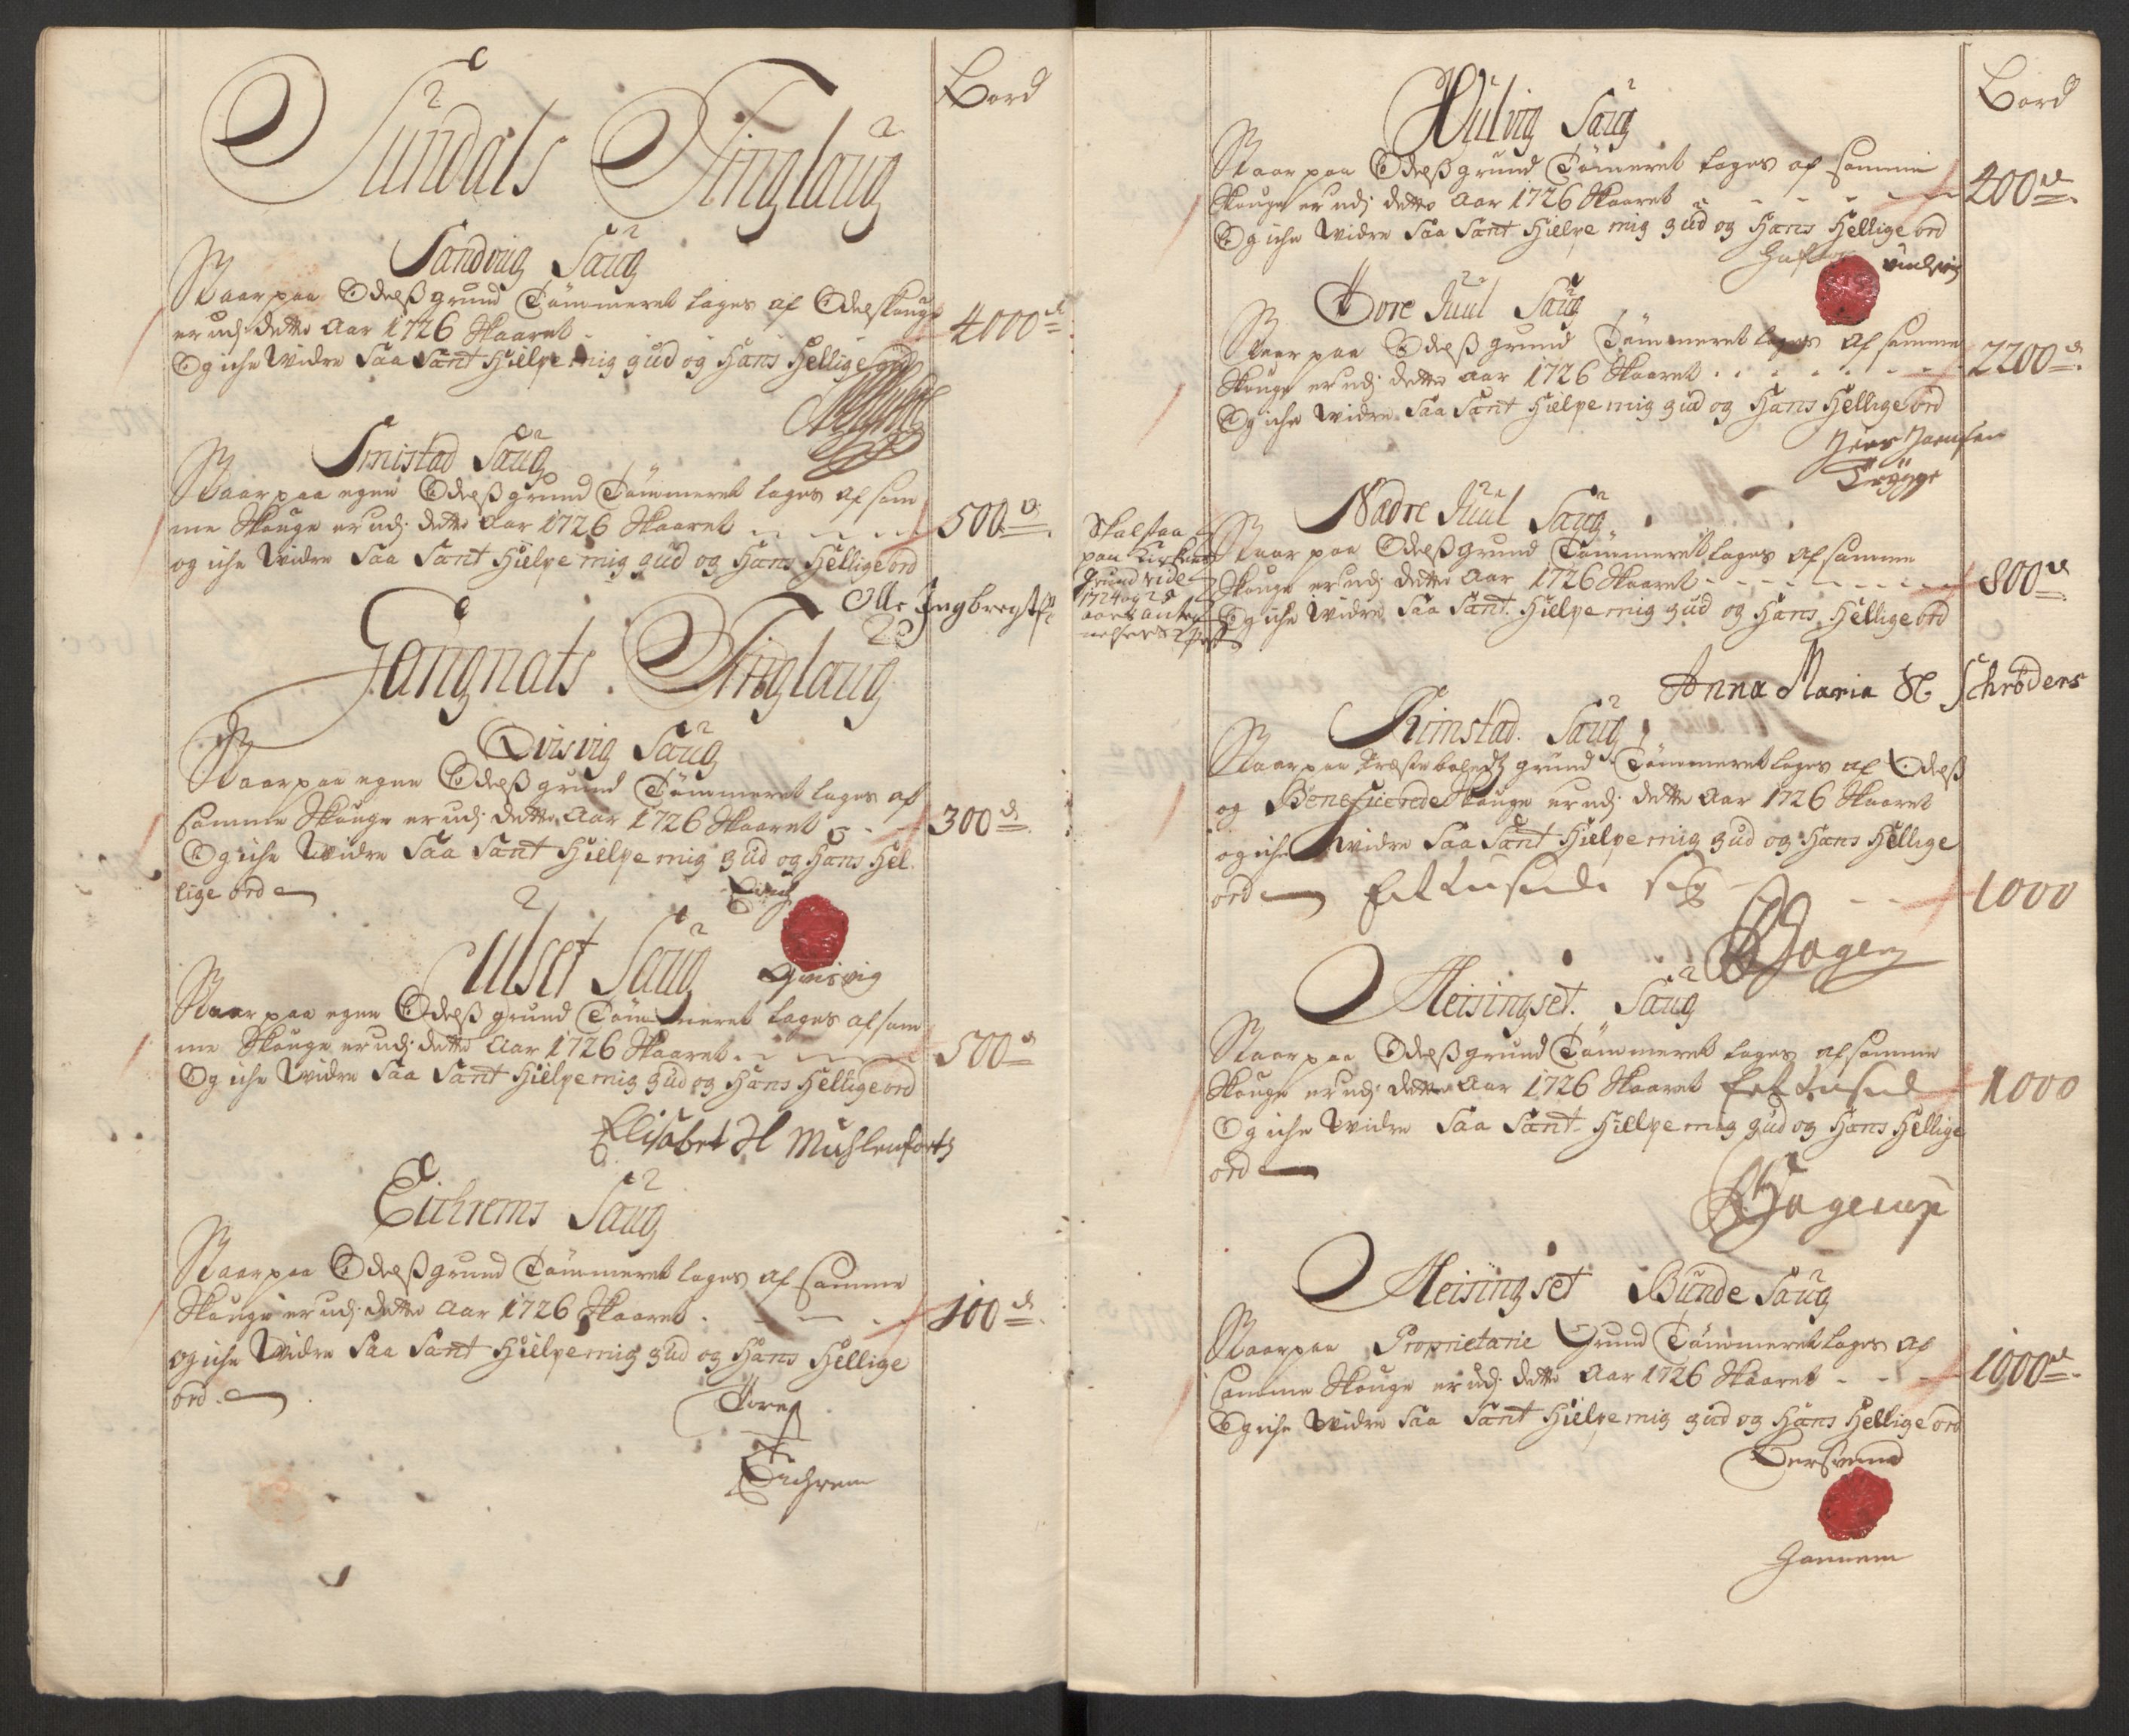 Bord
Sundals Tinglaug
Sandvig Saug
Staar paa Odelß grund Tømmeret tages af Odelskouge
er udj dette Aar 1726 Skaaret 4000 d
Og iche Widre Saa Sant Hielpe mig gud og Hans Hellige ord
Smistad Saug
Staar paa egen Odelß grund Tømmeret tages af sam
me Skouge er udj dette Aar 1726 Skaaret 500 d
og iche Widre Saa Sant Hielpe mig gud og Hans Hellige ord
Olle Ingbregts
Gaugnats Tinglaug
Qvisvig Saug
Staar paa egen Odelß grund Tømmeret tages af
samme Skouge er udj dette Aar 1726 Skaaret 300 d
Og iche Widre Saa Sant Hielpe mig gud og Hans Hel
lige ord
Qvisvig
Ulset Saug
Staar paa egen Odelß grund Tømmeret tages af sam
me Skouge er udj dette Aar 1726 Skaaret 500 d
Og iche Widre Saa Sant Hielpe mig gud og Hans Hellige ord
Elisabet H Muhlenforts
Eichrems Saug
Staar paa Odelß grund Tømmeret tages af samme
Skouge er udj dette Aar 1726 Skaaret 100 d
og iche Widre Saa Sant Hielpe mig gud og Hans Hellige
ord
Tore
Eichrem
Bord
Vulvig Saug
Staar paa Odelß grund Tømeret tages af samme
Skouge er udj dette Aar 1726 Skaaret 400 d
Og iche Widre Saa Sant Hielpe mig gud og Hans Hellige ord
Øore Juul Saug
Staar paa Odelß grund Tømmeret tages af samme
Skouge er udj dette Aar 1726 Skaaret 2200 d
Og iche Widre Saa Sant Hielpe mig gud og Hans Hellige ord
Jens Jensen
Trygge
Nædre Juul Saug
Skal staa
paa Kirkens
Grund vide
1724 og 25
aars
Staar paa Odelß grund Tømmeret tages af samme
Skouge er udj dette Aar 1726 Skaaret 800 d
Og iche Widre Saa Sant Hielpe mig gud og Hans Hellige ord
Anna Maria Sl Schrøders
Rimstad Saug
Staar paa Præstebolets grund Tømmeret tages af Odelß
og Beneficerede Skouge er udj dette Aar 1726 Skaaret
og iche Widre Saa Sant Hielpe mig gud og Hans Hellige
ord Eet tusende 1000
Meisingset Saug
Staar paa Odelß grund Tømmeret tages af samme
Skouge er udj dette Aar 1726 Skaaret Eet tusend 1000
Og iche Widre Saa Sant Hielpe mig gud og Hans Hellige
ord
Hagerup
Meisingset Bunde Saug
Staar paa Proprietarie Grund Tømmeret tages af
samme Skouge er udj dette Aar 1726 Skaaret 1000 d
Og iche Widre Saa Sant Hielpe mig gud og Hans Hellige ord